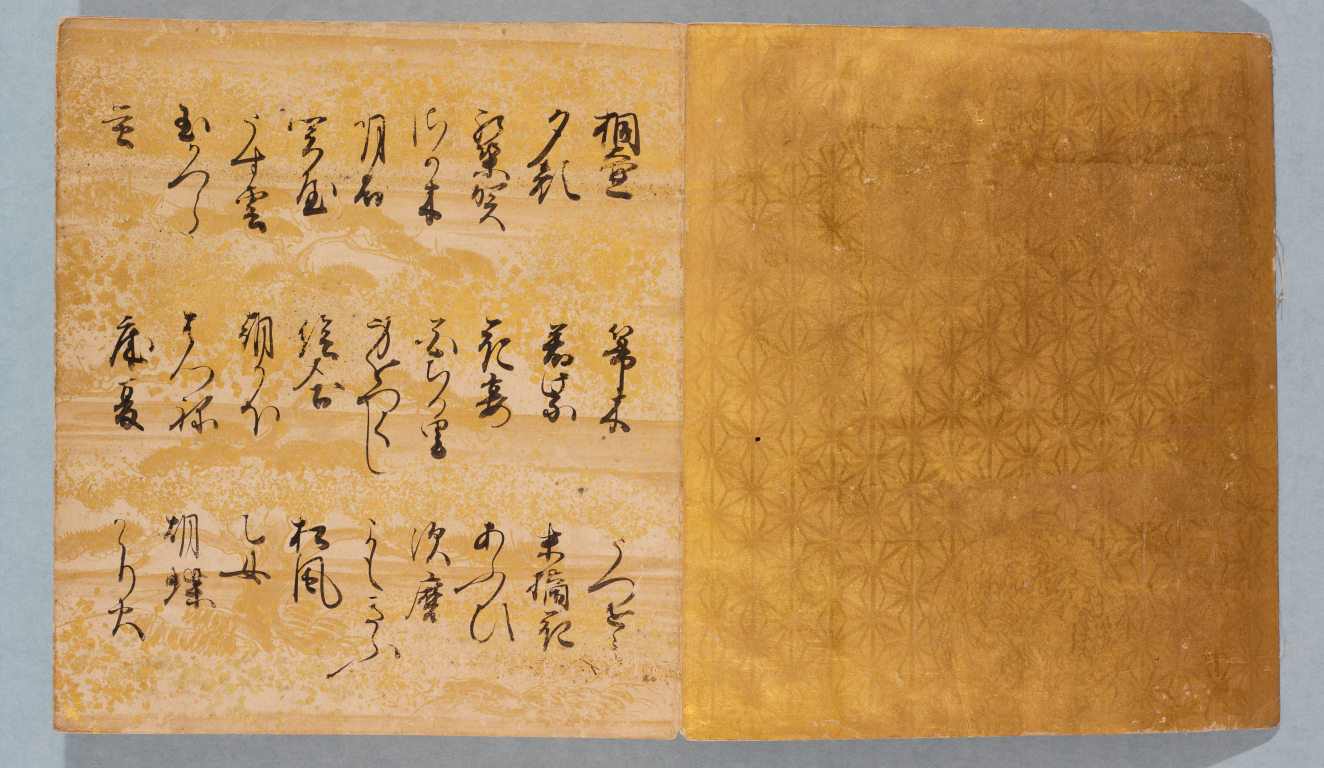 桐壷 箒木 うつせミ
夕顔 若紫 末摘花
紅葉賀 花宴 あふひ
さか木 花ちる里 須磨
明石 身をつくし よもきふ
関屋 絵合 松風
うす雲 朝かほ 乙女
玉かつら はつね 胡蝶
蛍 床夏 かゝり火